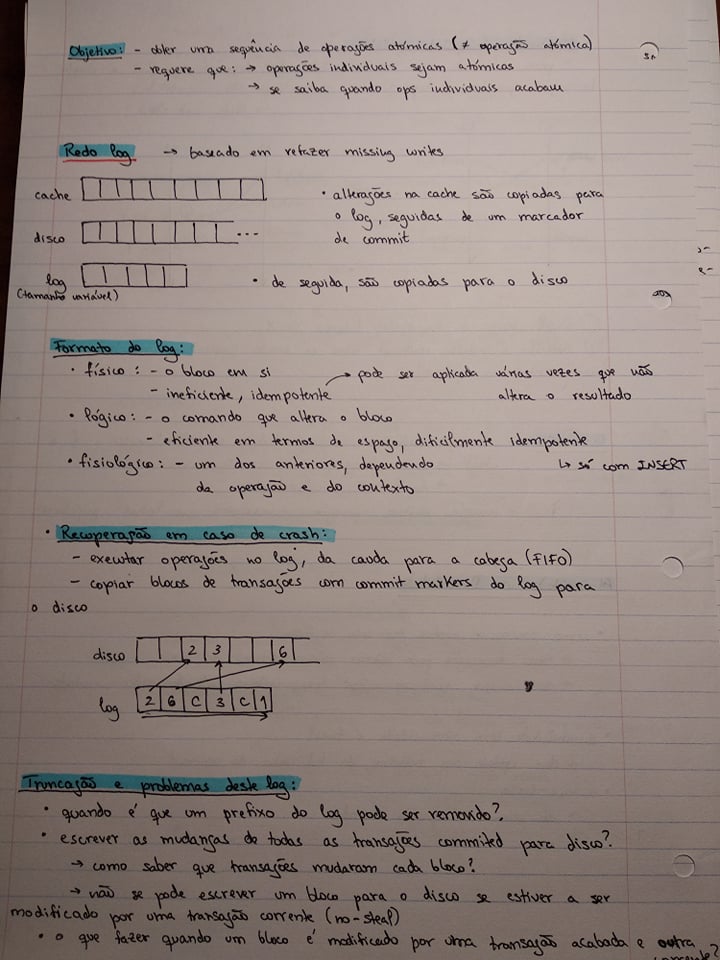 Objetivo: - obter uma sequência de operações atómicas (≠ operação atómica)
- requere que: → operações individuais sejam atómicas
→ se saiba quando ops individuais acabam
Redo log → baseado em refazer missing writes
cache
• alterações na cache são copiadas para
o log, seguidas de um marcador
disco ...
de commit
log
(tamanho variável)
• de seguida, são copiadas para o disco
Formato do log:
• físico: - o bloco em si → pode ser aplicada várias vezes que não
- ineficiente, idempotente altera o resultado
• lógico: - o comando que altera o bloco
- eficiente em termos de espaço, dificilmente idempotente
• fisiológico: - um dos anteriores, dependendo ↳ só com INSERT
da operação e do contexto
• Recuperação em caso de crash:
- executar operações no log, da cauda para a cabeça (FIFO)
- copiar blocos de transações com commit markers do log para
o disco
disco 2 3 6
log 2 6 C 3 C 1
Truncação e problemas deste log:
• quando é que um prefixo do log pode ser removido?
• escrever as mudanças de todas as transações commited para disco?
→ como saber que transações mudaram cada bloco?
→ não se pode escrever um bloco para o disco se estiver a ser
modificado por uma transação corrente (no-steal)
• o que fazer quando um bloco é modificado por uma transação acabada e outra